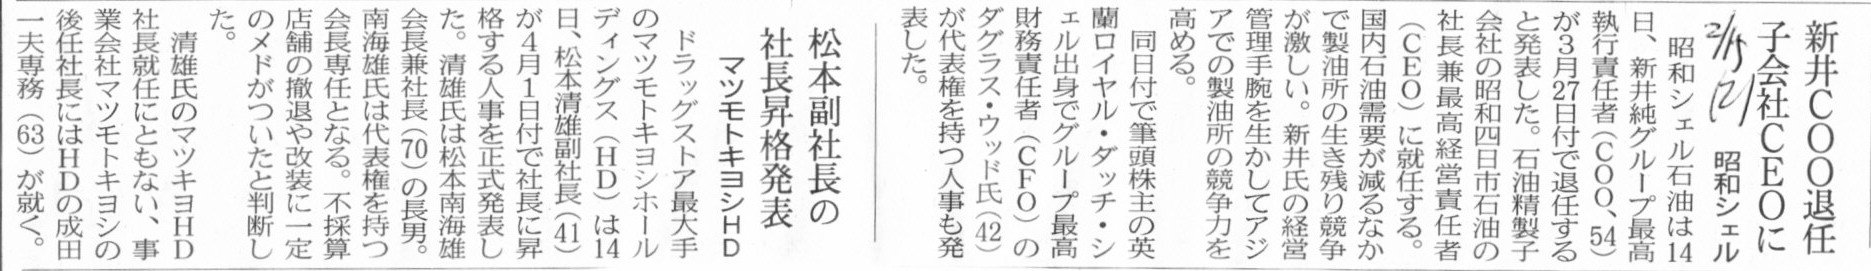 新井COO退任
子会社CEOに
昭和シェル
2/15
昭和シェル石油は14
日、新井純グループ最高
執行責任者（COO、54）
が3月27日付で退任する
と発表した。石油精製子
会社の昭和四日市石油の
社長兼最高経営責任者
（CEO）に就任する。
国内石油需要が減るなか
で製油所の生き残り競争
が激しい。新井氏の経営
管理手腕を生かしてアジ
アでの製油所の競争力を
高める。
同日付で筆頭株主の英
蘭ロイヤル・ダッチ・シ
ェル出身でグループ最高
財務責任者（CFO）の
ダグラス・ウッド氏（42）
が代表権を持つ人事も発
表した。
松本副社長の
社長昇格発表
マツモトキヨシHD
ドラッグストア最大手
のマツモトキヨシホール
ディングス（HD）は14
日、松本清雄副社長（41）
が4月1日付で社長に昇
格する人事を正式発表し
た。清雄氏は松本南海雄
会長兼社長（70）の長男。
南海雄氏は代表権を持つ
会長専任となる。不採算
店舗の撤退や改装に一定
のメドがついたと判断し
た。
清雄氏のマツキヨHD
社長就任にともない、事
業会社マツモトキヨシの
後任社長にはHDの成田
一夫専務（63）が就く。